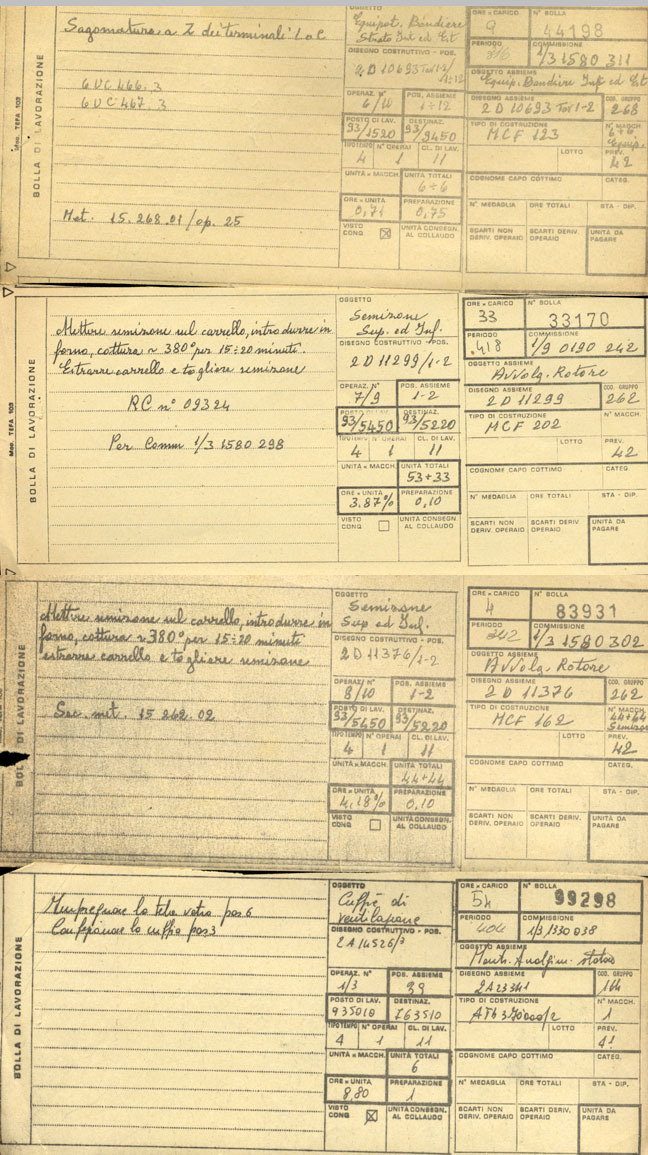 Mod. TEFA 103
BOLLA DI LAVORAZIONE
Sagomatura a Z dei terminali L a C
6 UC 466.3
6 UC 467.3
Met. 15.268.01/op. 25
OGGETTO
Equipot. Bandiere
DISEGNO COSTRUTTIVO - POS.
2 D 10693
OPERAZ. N° POS. ASSIEME
6/10 1÷12
POSTO DI LAV. DESTINAZ.
93/1520 93/9450
TIPO TEMPO N° OPERAI CL. DI LAV.
4 1 11
UNITÀ x MACCH. UNITÀ TOTALI
6+6
ORE x UNITÀ PREPARAZIONE
0,71 0,75
VISTO CONQ UNITÀ CONSEGN. AL COLLAUDO
ORE x CARICO N° BOLLA
9 44198
PERIODO COMMISSIONE
1/3 1580 311
OGGETTO ASSIEME
Equip. Bandiere Inf ed Est
DISEGNO ASSIEME COD. GRUPPO
2 D 10693 Tav 1-2 268
TIPO DI COSTRUZIONE N° MACCH.
MCF 123 6+6
LOTTO PREV.
42
COGNOME CAPO COTTIMO CATEG.
N° MEDAGLIA ORE TOTALI STA - DIP.
SCARTI NON DERIV. OPERAIO SCARTI DERIV. OPERAIO UNITÀ DA PAGARE
Mod. TEFA 103
BOLLA DI LAVORAZIONE
Mettere semizone sul carrello, introdurre in
forno, cottura ~ 380° per 15÷20 minuti.
Estrarre carrello e togliere semizone
RC n° 09324
Per Comm 1/3 1580 298
OGGETTO
Semizone
Sup. ed Inf.
DISEGNO COSTRUTTIVO - POS.
2 D 11299/1-2
OPERAZ. N° POS. ASSIEME
7/9 1-2
POSTO DI LAV. DESTINAZ.
93/5450 93/5220
TIPO TEMPO N° OPERAI CL. DI LAV.
4 1 11
UNITÀ x MACCH. UNITÀ TOTALI
53+33
ORE x UNITÀ PREPARAZIONE
3.87% 0,10
VISTO CONQ UNITÀ CONSEGN. AL COLLAUDO
ORE x CARICO N° BOLLA
33 33170
PERIODO COMMISSIONE
.418 1/9 0190 242
OGGETTO ASSIEME
Avvolg. Rotore
DISEGNO ASSIEME COD. GRUPPO
2 D 11299 262
TIPO DI COSTRUZIONE N° MACCH.
MCF 202
LOTTO PREV.
42
COGNOME CAPO COTTIMO CATEG.
N° MEDAGLIA ORE TOTALI STA - DIP.
SCARTI NON DERIV. OPERAIO SCARTI DERIV. OPERAIO UNITÀ DA PAGARE
BOLLA DI LAVORAZIONE
Mettere semizone sul carrello, introdurre in
forno, cottura ~ 380° per 15÷20 minuti
estrarre carrello e togliere semizone
Sec. met. 15 262.02
OGGETTO
Semizone
Sup ed Inf.
DISEGNO COSTRUTTIVO - POS.
2 D 11376/1-2
OPERAZ. N° POS. ASSIEME
8/10 1-2
POSTO DI LAV. DESTINAZ.
93/5450 93/5220
TIPO TEMPO N° OPERAI CL. DI LAV.
4 1 11
UNITÀ x MACCH. UNITÀ TOTALI
44+44
ORE x UNITÀ PREPARAZIONE
4,18% 0,10
VISTO CONQ UNITÀ CONSEGN. AL COLLAUDO
ORE x CARICO N° BOLLA
4 83931
PERIODO COMMISSIONE
242 1/3 1580 302
OGGETTO ASSIEME
Avvolg. Rotore
DISEGNO ASSIEME COD. GRUPPO
2 D 11376 262
TIPO DI COSTRUZIONE N° MACCH.
MCF 162 44+44
LOTTO PREV.
42
COGNOME CAPO COTTIMO CATEG.
N° MEDAGLIA ORE TOTALI STA - DIP.
SCARTI NON DERIV. OPERAIO SCARTI DERIV. OPERAIO UNITÀ DA PAGARE
BOLLA DI LAVORAZIONE
Impregnare la tela vetro pos 6
Confezionare la cuffia pos 3
OGGETTO
Cuffie di
ventilazione
DISEGNO COSTRUTTIVO - POS.
2A14526/3
OPERAZ. N° POS. ASSIEME
1/3 39
POSTO DI LAV. DESTINAZ.
935010 763510
TIPO TEMPO N° OPERAI CL. DI LAV.
4 1 11
UNITÀ x MACCH. UNITÀ TOTALI
6
ORE x UNITÀ PREPARAZIONE
8,80 1
VISTO CONQ UNITÀ CONSEGN. AL COLLAUDO
ORE x CARICO N° BOLLA
54 99298
PERIODO COMMISSIONE
404 1/3 1330 038
OGGETTO ASSIEME
DISEGNO ASSIEME COD. GRUPPO
2A23341 164
TIPO DI COSTRUZIONE N° MACCH.
1
LOTTO PREV.
COGNOME CAPO COTTIMO CATEG.
N° MEDAGLIA ORE TOTALI STA - DIP.
SCARTI NON DERIV. OPERAIO SCARTI DERIV. OPERAIO UNITÀ DA PAGARE